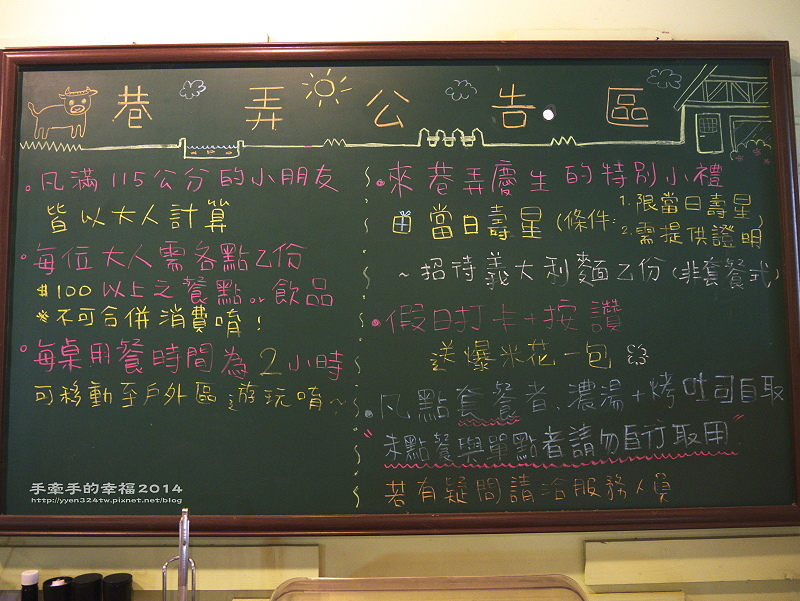 巷弄公告區
•凡滿115公分的小朋友
皆以大人計算
•每位大人需各點乙份
$100以上之餐點or飲品
※不可合併消費唷!
•每桌用餐時間為2小時
可移動至戶外區遊玩唷~
•來巷弄慶生的特別小禮
當日壽星(條件:1.限當日壽星
2.需提供證明)
~招待義大利麵乙份(非套餐式)
•假日打卡+按讚
送爆米花一包
•凡點套餐者、濃湯+烤吐司自取
"未點餐與單點者請勿自行取用"
若有疑問請洽服務人員
手牽手的幸福2014
http://yyen324tw.pixnet.net/blog